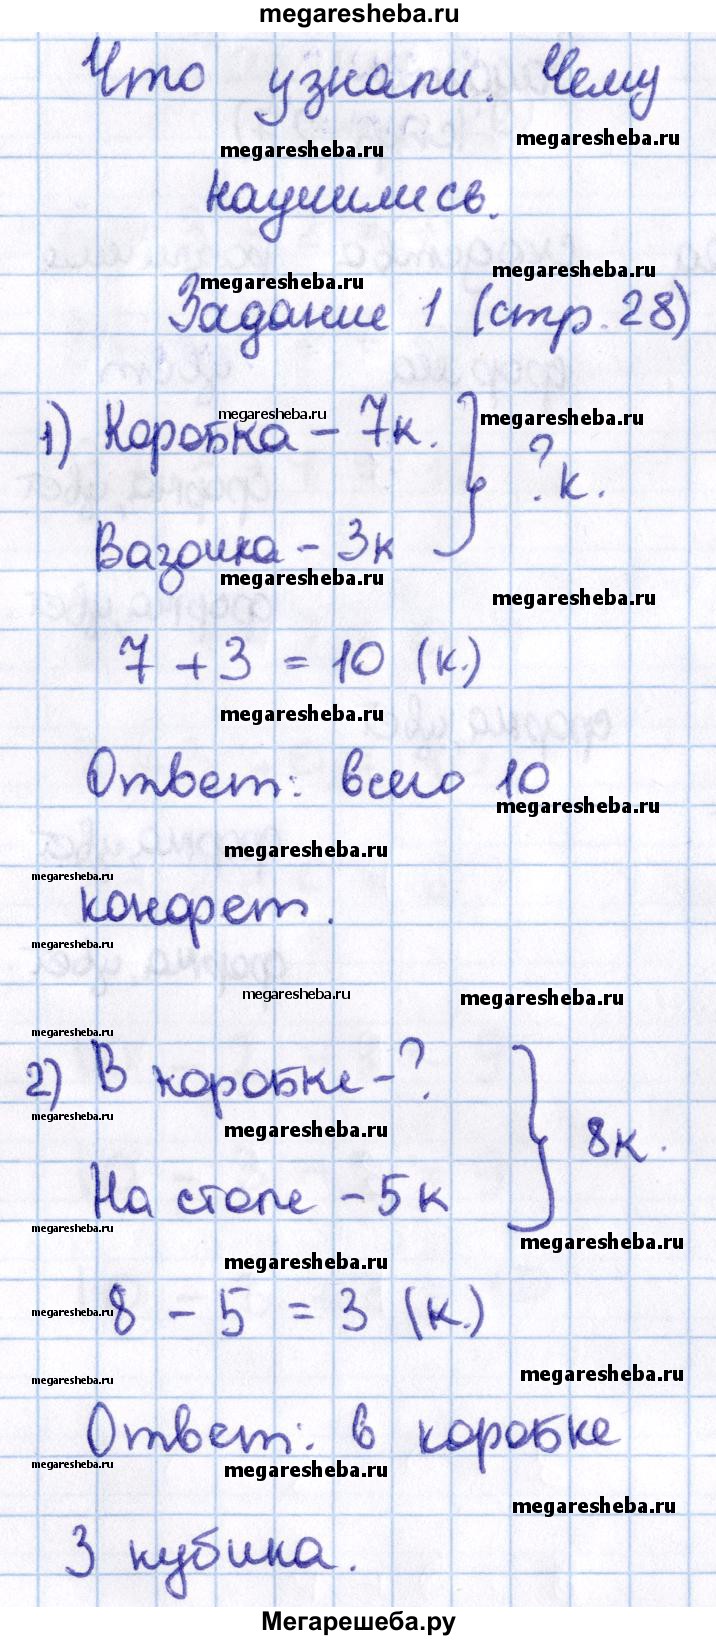 megaresheba.ru
Что узнали. Чему
megaresheba.ru
megaresheba.ru
научились.
megaresheba.ru
megaresheba.ru
Задание 1 (стр. 28)
megaresheba.ru
megaresheba.ru
1) Коробка – 7к.
? к.
Вазочка – 3к
megaresheba.ru
megaresheba.ru
7 + 3 = 10 (к.)
megaresheba.ru
Ответ: всего 10
megaresheba.ru
megaresheba.ru
megaresheba.ru
конфет.
megaresheba.ru
megaresheba.ru
megaresheba.ru
megaresheba.ru
2) В коробке – ?
megaresheba.ru
megaresheba.ru
8к.
На столе – 5к
megaresheba.ru
megaresheba.ru
megaresheba.ru
8 – 5 = 3 (к.)
megaresheba.ru
megaresheba.ru
megaresheba.ru
Ответ: в коробке
megaresheba.ru
megaresheba.ru
megaresheba.ru
3 кубика.
Мегарешеба.ру